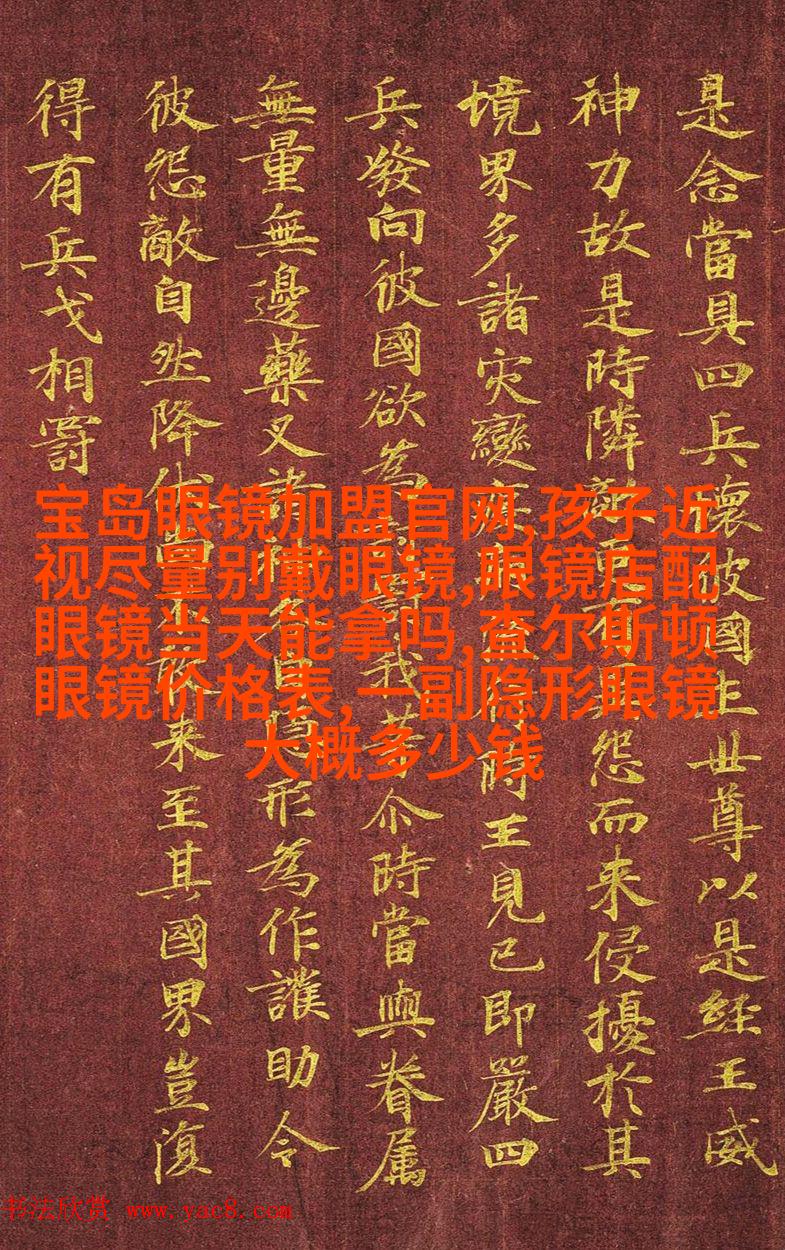 是念當具四兵壞彼國土世尊以是經王威
神力故是時隣敵更有異怨而来侵擾於其
境界多諸灾變疫時王見已即嚴四
兵發向彼國欲為討罰我等尒時當與眷属
無量無邊藥叉諸神各自隱形為作護助令
彼怨敵自然降伏尚不敢来至其國界豈復
得有兵戈相罸
宝岛眼镜加盟官网,孩子近
视尽量别戴眼镜,眼镜店配
眼镜当天能拿吗,查尔斯顿
眼镜价格表,一副隐形眼镜
大概多少钱
书法欣赏 www.yac8.com